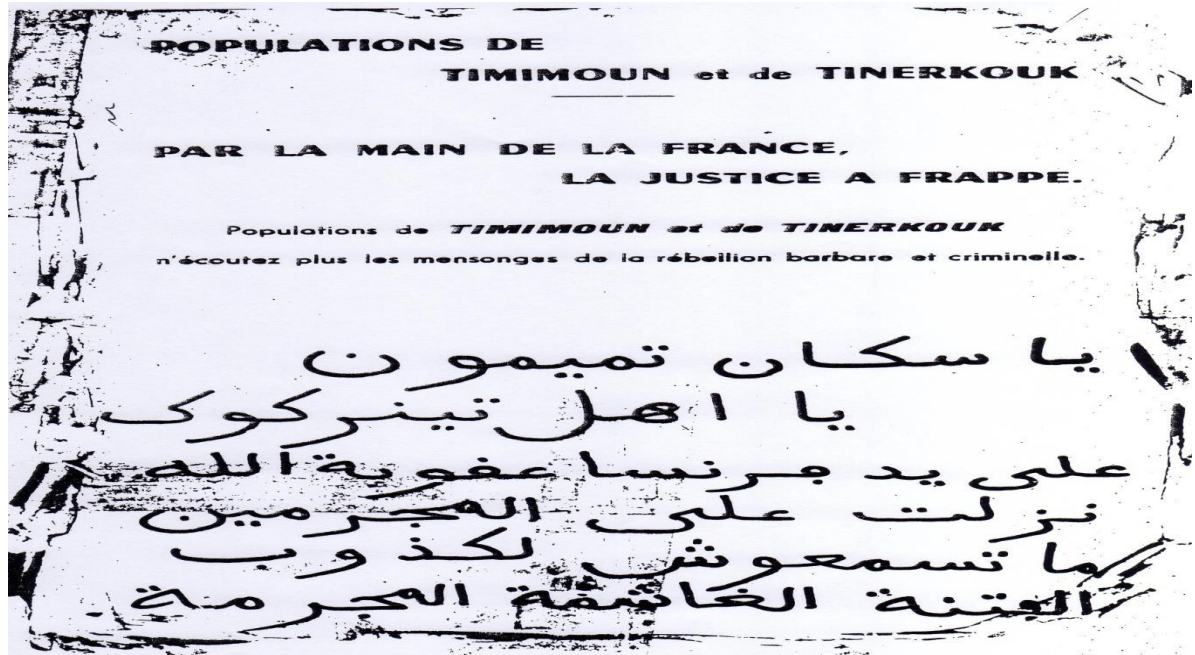 POPULATIONS DE
TIMIMOUN et de TINERKOUK
PAR LA MAIN DE LA FRANCE,
LA JUSTICE A FRAPPE.
Populations de TIMIMOUN et de TINERKOUK
n'écoutez plus les mensonges de la rébellion barbare et criminelle.
يا سكان تميمون
يا اهل تينركوك
على يد فرنسا عقوبة الله
نزلت على المجرمين
ما تسمعوش لكذوب
الفتنة الغاشمة المجرمة.